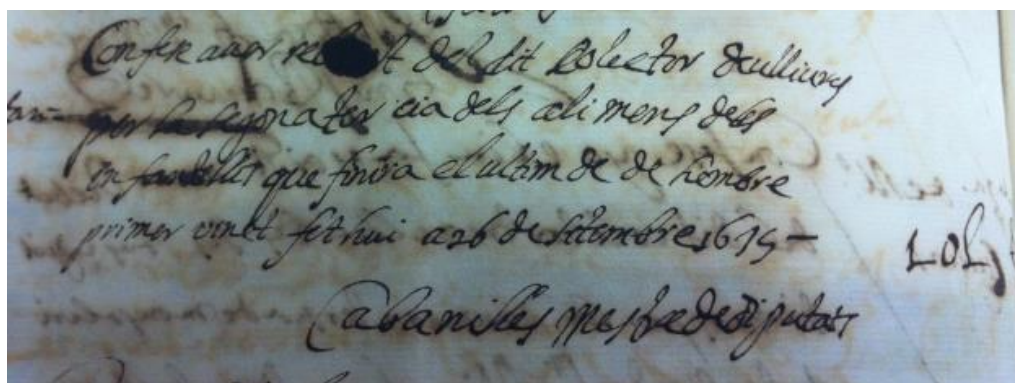 Confese auer rebut del dit Colector 
per la segona tercia dels alimens dels
infantillos que finira el ultim de dehembre
primer vinēt fet hui a 26 de setembre 1675 -
10 L
Cabanilles mestre de diputats